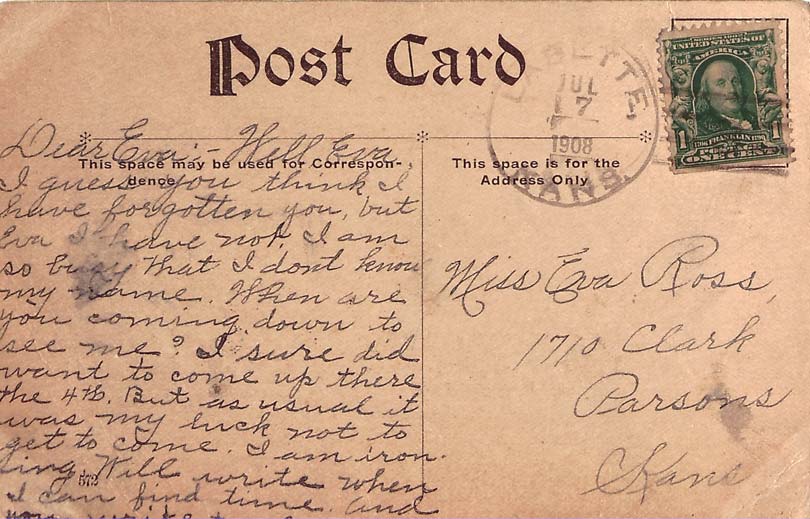 Post Card
LABETTE,
JUL
7
1908
KANS.
SERIES 1902
UNITED STATES OF
AMERICA
1 FRANKLIN 1
POSTAGE
ONE CENT
This space may be used for Correspon-
dence
This space is for the
Address Only
Dear Eva:- Well Eva,
I guess you think I
have forgotten you, but
Eva I have not. I am
so busy that I dont know
my name. When are
you coming down to
see me? I sure did
want to come up there
the 4th. But as usual it
was my luck not to
get to come. I am iron-
ing. Will write when
I can find time. and
572
Miss Eva Ross,
1710 Clark
Parsons
Kans